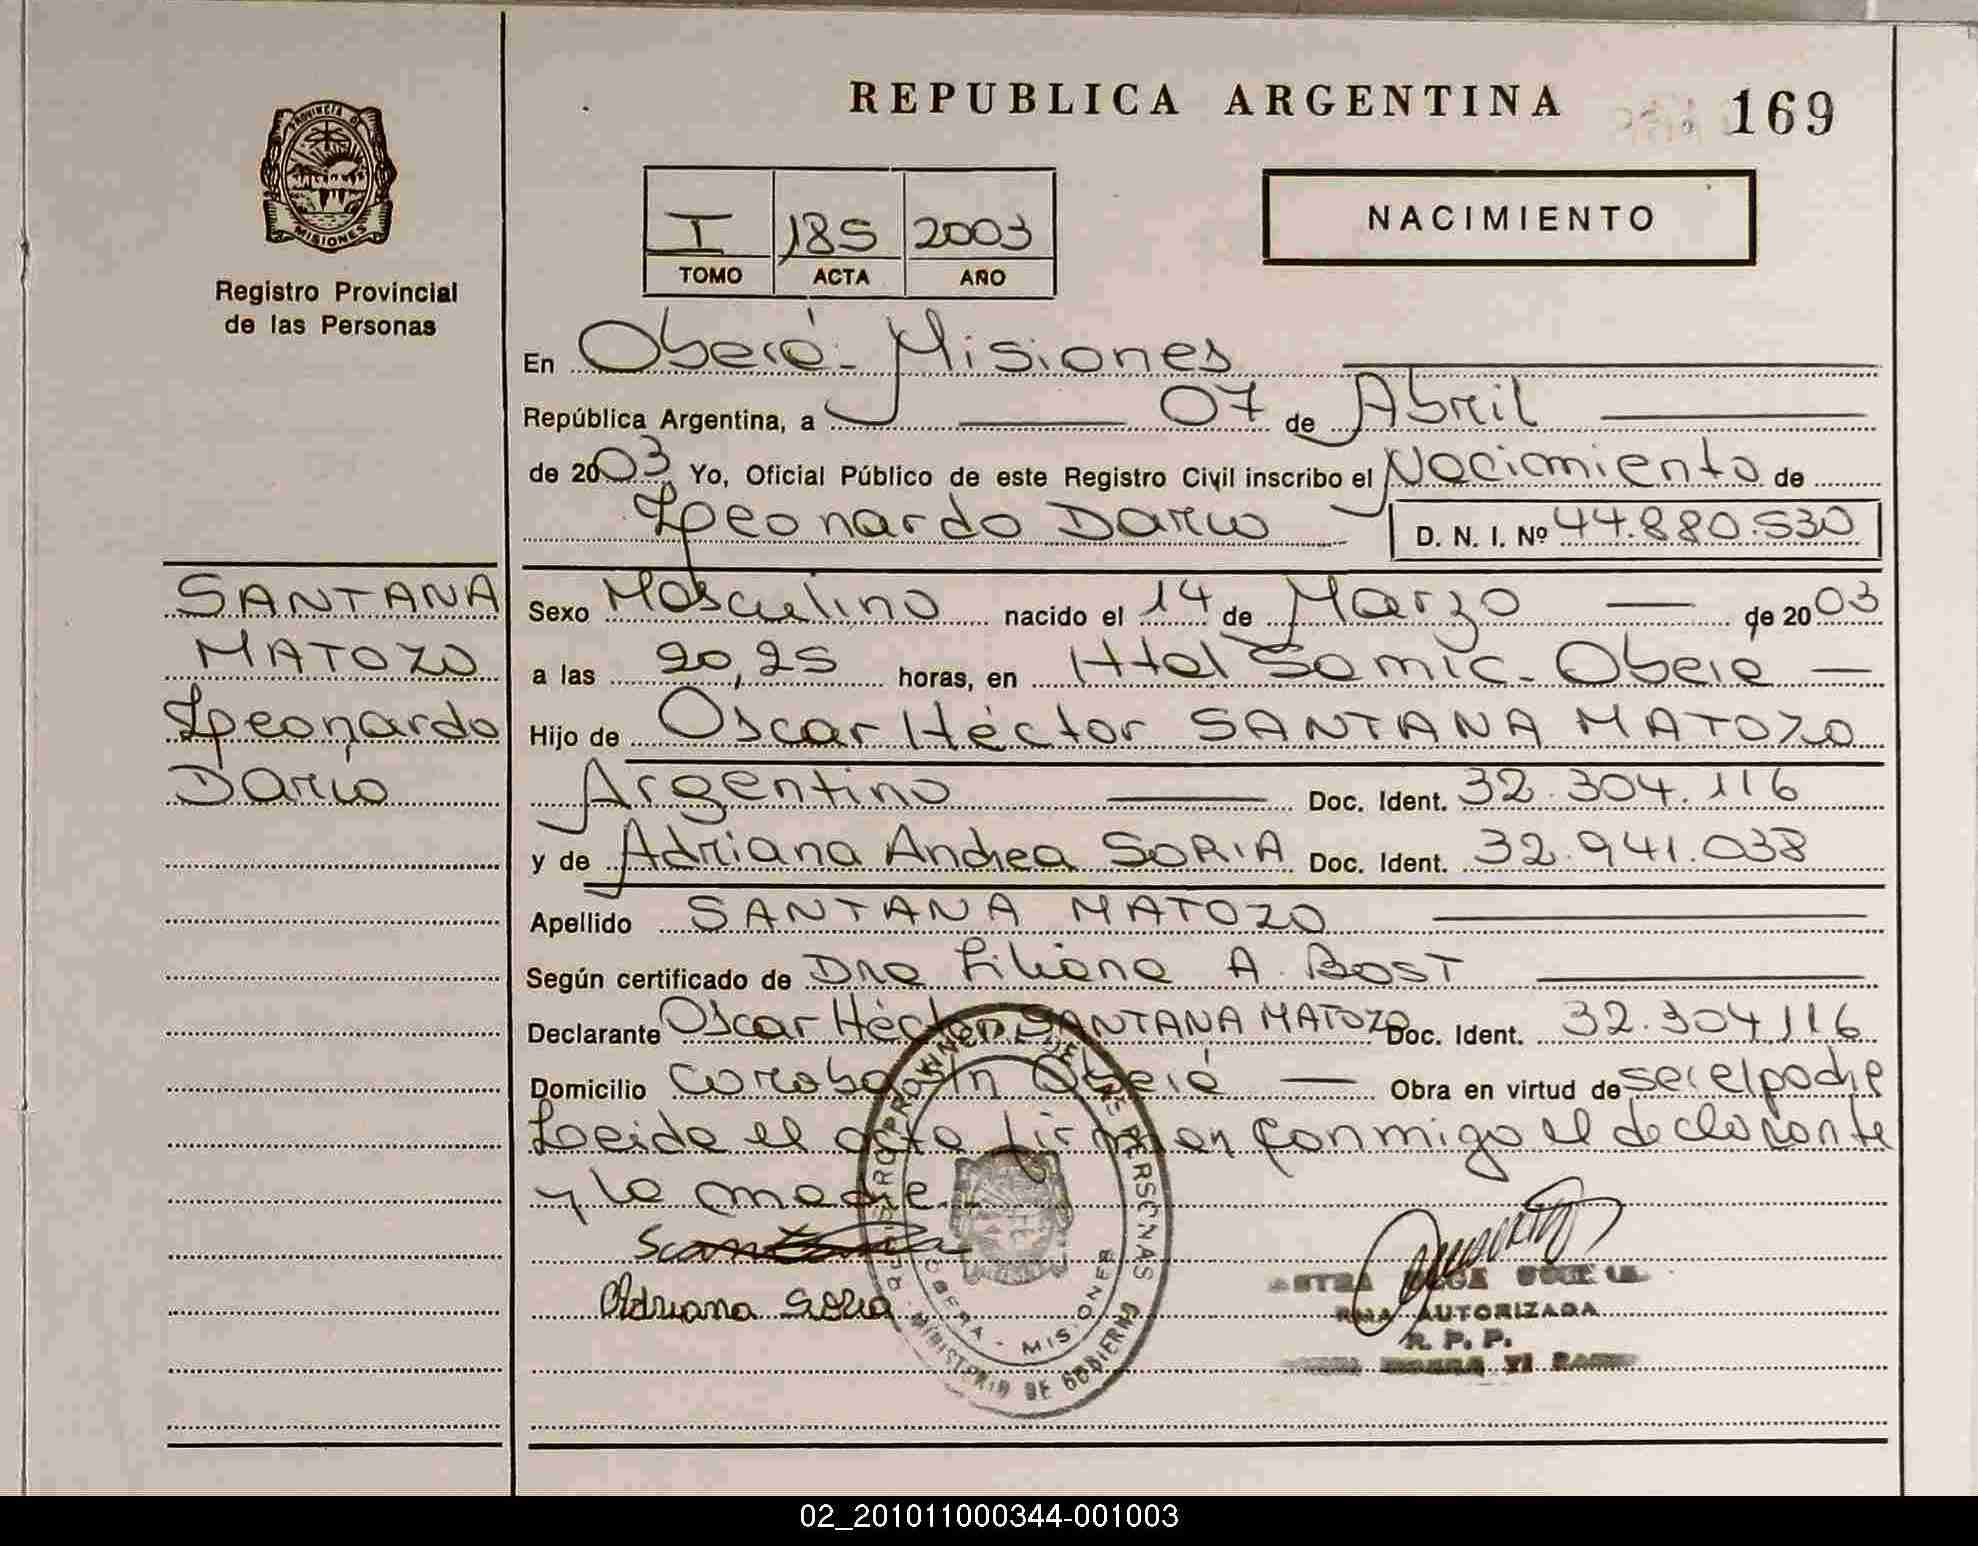 REPUBLICA ARGENTINA 169
PROVINCIA DE
MISIONES
Registro Provincial
de las Personas
I 185 2003
TOMO ACTA AÑO
NACIMIENTO
En Oberá - Misiones
República Argentina, a 07 de Abril
de 2003 Yo, Oficial Público de este Registro Civil inscribo el Nacimiento de
Leonardo Dario D. N. I. Nº 44.880.530
SANTANA
MATOZO
Leonardo
Dario
Sexo Masculino nacido el 14 de Marzo de 2003
a las 20,25 horas, en Htal Samic - Oberá
Hijo de Oscar Héctor SANTANA MATOZO
Argentino Doc. Ident. 32.304.116
y de Adriana Andrea SORIA Doc. Ident. 32.941.038
Apellido SANTANA MATOZO
Según certificado de Dra Liliana A. BOST
Declarante Oscar Héctor SANTANA MATOZO Doc. Ident. 32.304.116
Domicilio s/n Oberá Obra en virtud de ser el padre
Leida el acta firman conmigo el declarante
y la madre.
Santana
Adriana Soria
REGISTRO PROVINCIAL DE LAS PERSONAS
OBERA - MISIONES
MINISTERIO DE GOBIERNO
AUTORIZADA
R. P. P.
02_201011000344-001003